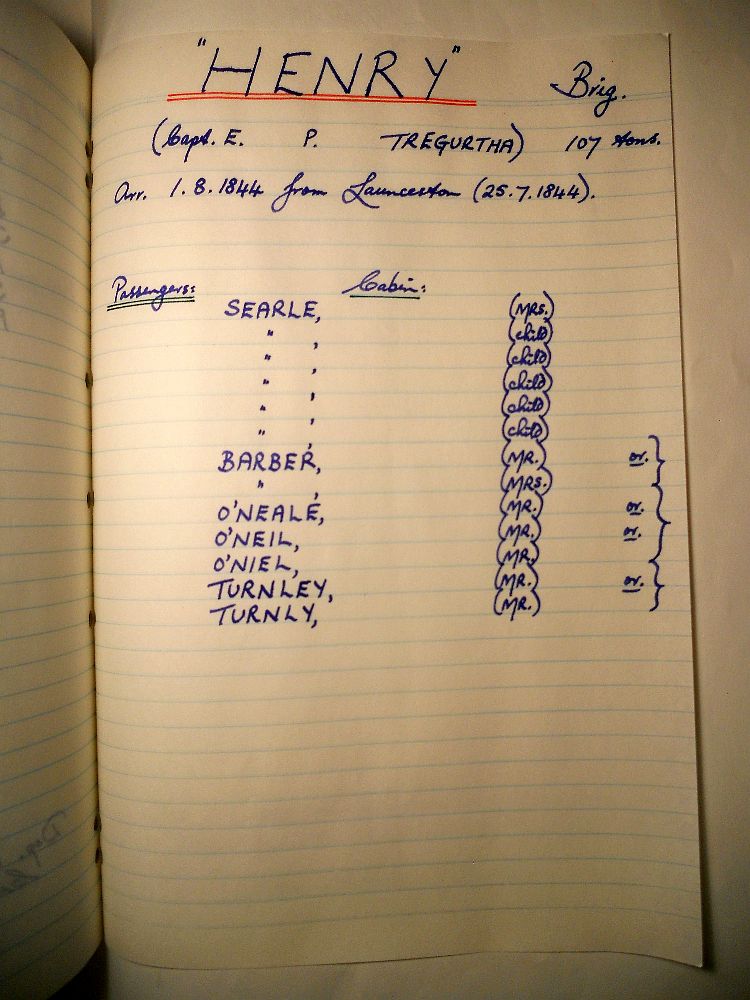 "HENRY" Brig.
(Capt. E. P. TREGURTHA) 107 tons.
Arr. 1.8.1844 from Launceston (25.7.1844).
Passengers: Cabin:
SEARLE, (MRS.)
" , (child)
" , (child)
" , (child)
" , (child)
" , (child)
BARBER, (MR.) or.
" , (MRS.)
O'NEALE, (MR.) or.
O'NEIL, (MR.) or.
O'NIEL, (MR.)
TURNLEY, (MR.) or.
TURNLY, (MR.)